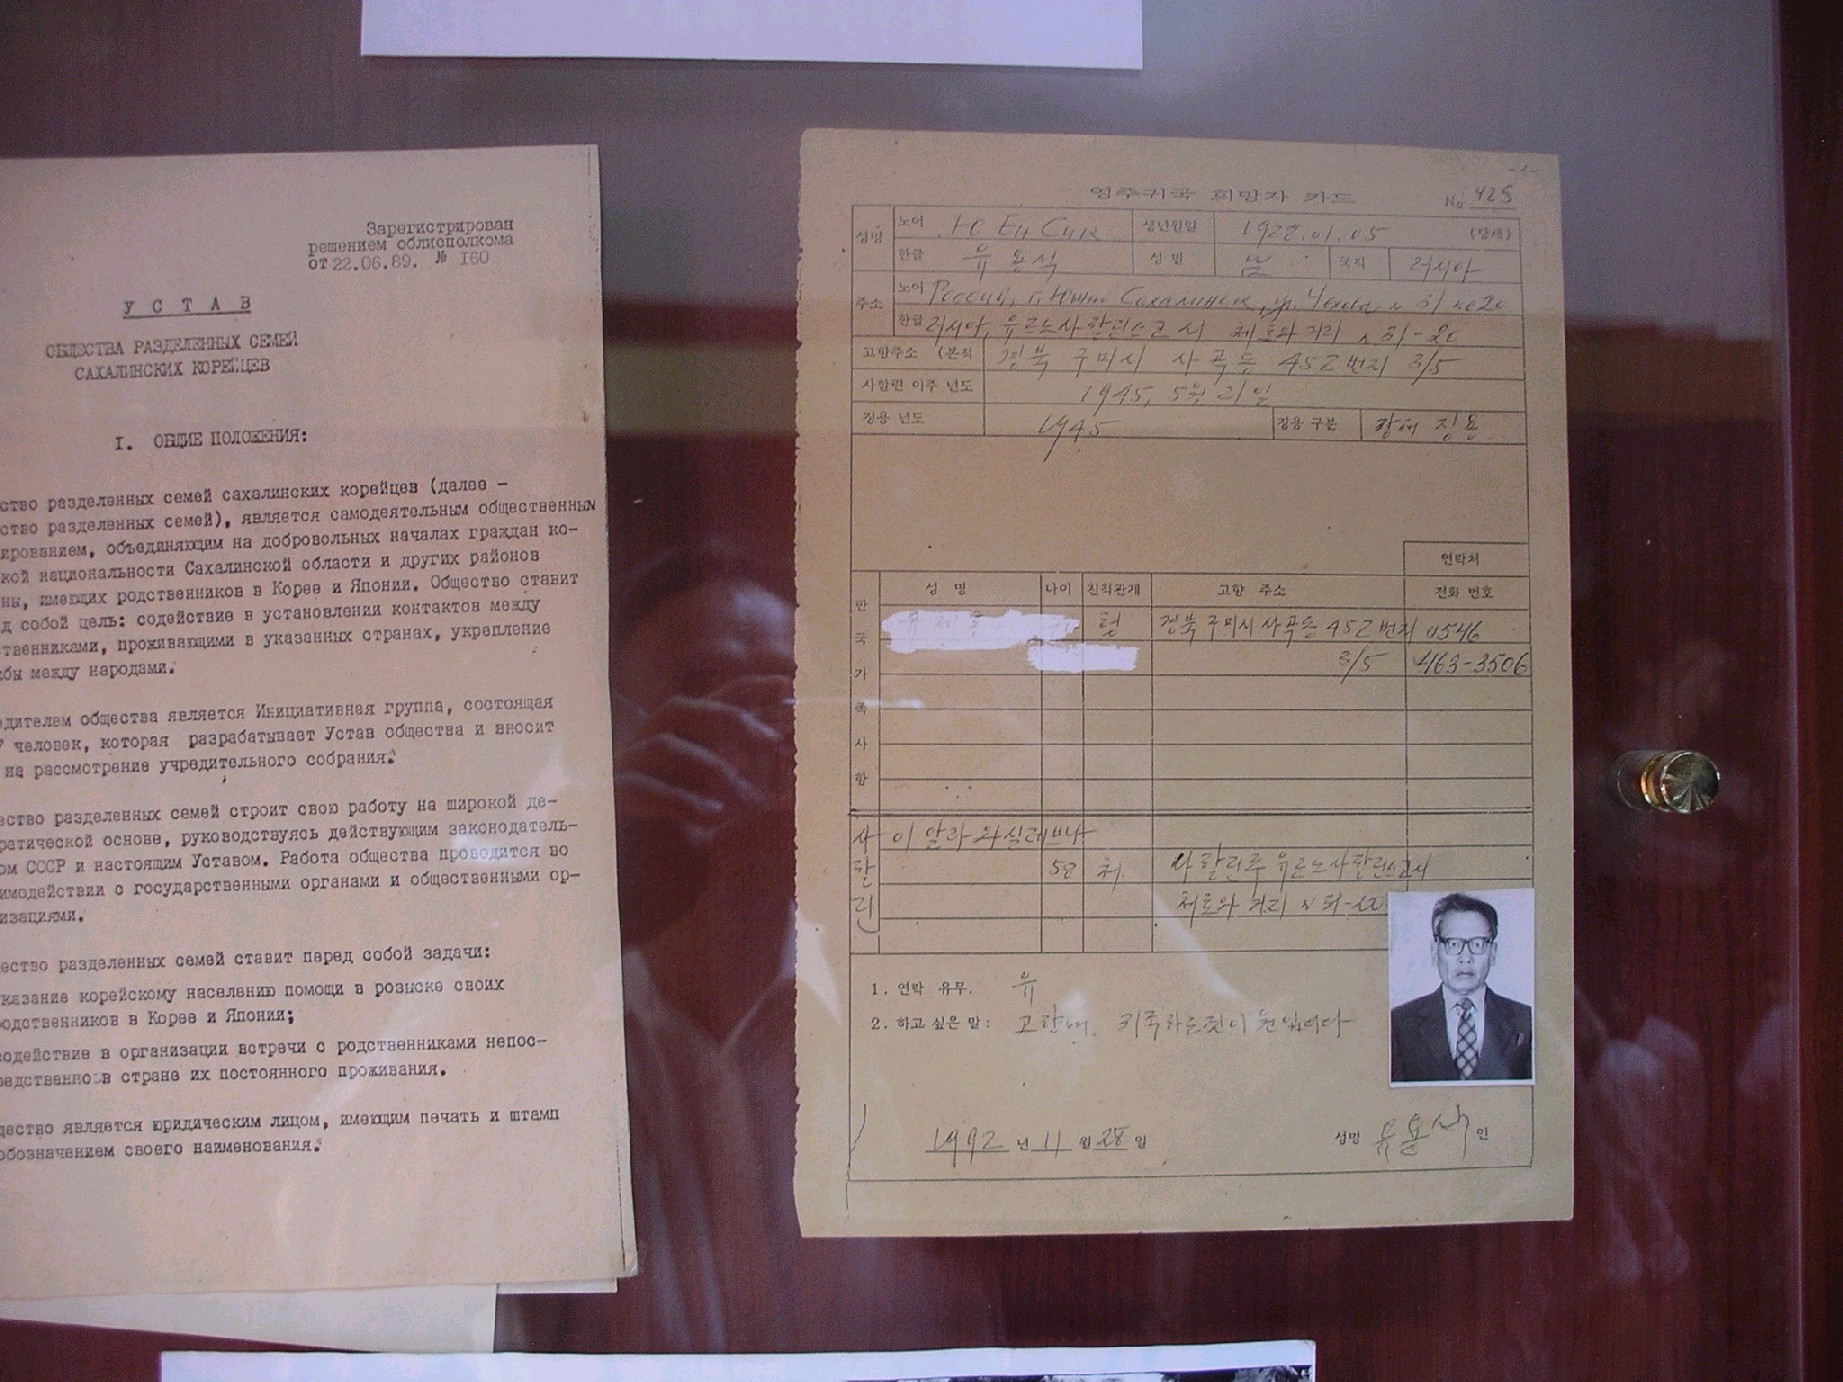 Зарегистрирован
решением облисполкома
от 22.06.89. № 160
У С Т А В
ОБЩЕСТВА РАЗДЕЛЕННЫХ СЕМЕЙ
САХАЛИНСКИХ КОРЕЙЦЕВ
I. ОБЩИЕ ПОЛОЖЕНИЯ:
ство разделенных семей сахалинских корейцев (далее –
ство разделенных семей), является самодеятельным общественным
ированием, объединяющим на добровольных началах граждан ко-
кой национальности Сахалинской области и других районов
ны, имеющих родственников в Корее и Японии. Общество ставит
д собой цель: содействие в установлении контактов между
ственниками, проживающими в указанных странах, укрепление
бы между народами.
дителем общества является Инициативная группа, состоящая
7 человек, которая разрабатывает Устав общества и вносит
на рассмотрение учредительного собрания.
ество разделенных семей строит свою работу на широкой де-
ратической основе, руководствуясь действующим законодатель-
ом СССР и настоящим Уставом. Работа общества проводится во
имодействии с государственными органами и общественными ор-
изациями.
ество разделенных семей ставит перед собой задачи:
казание корейскому населению помощи в розыске своих
одственников в Корее и Японии;
содействие в организации встречи с родственниками непос-
редственно в стране их постоянного проживания.
щество является юридическим лицом, имеющим печать и штамп
обозначением своего наименования.
영주귀국 희망자 카드 No 425
성명 노어 Ю Ен Сик 생년월일 (만세)
한글 유용식 성별 남 국적 러시아
주소 노어 Россия, г. Южно Сахалинск, ул. Чехова
한글 러시아, 유즈노사할린스크시 체호와 거리
고향주소 (본적 경북 구미시 사곡동 452번지 3/5
사할린 이주 년도 1945. 5월 21일
징용 년도 1945 징용 구분 징용
연락처
성 명 나이 친척관계 고향 주소 전화 번호
한국가족사항
형 경북 구미시 사곡동 452번지 0546
3/5 463-3506
사할린
58 처
체호와 거리
1. 연락 유무. 유
2. 하고 싶은 말:
1992 년 11 월 28 일
성명 유용식 인